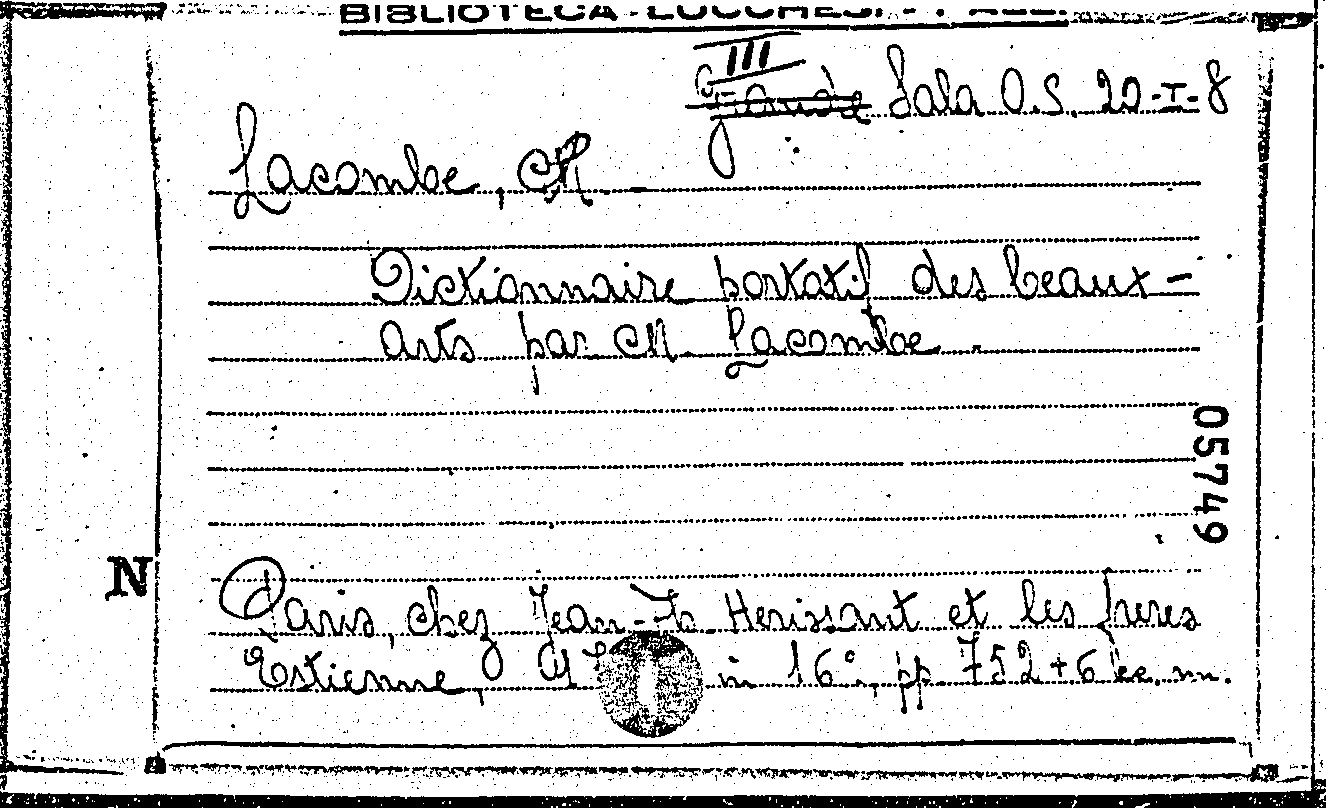 BIBLIOTECA LUCCHESI - PALL.
III
Grande Sala O.S. 20-I-8
Lacombe, M
Dictionnaire portatif des beaux-
arts par M. Lacombe.
05749
N
Paris, chez Jean-Th Herissant et les freres
Estienne, in 16°, pp 752+6 cc. nn.